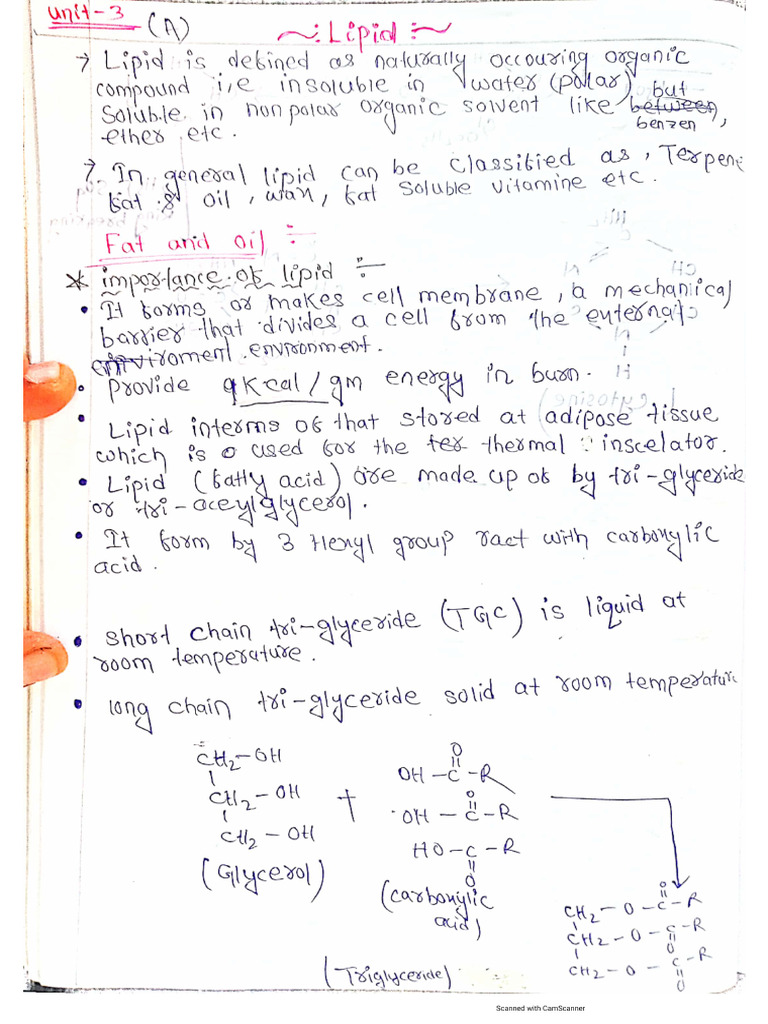 Unit-3
(A)
~: Lipid :~
→ Lipid is defined as naturally occouring organic
compound i,e insoluble in water (polar) but
Soluble in nonpolar organic solvent like between benzen,
ether etc.
→ In general lipid can be classified as, Terpene
fat & oil, wax, fat soluble vitamine etc.
Fat and oil :-
* importance of lipid :-
• It forms or makes cell membrane, a mechanical
barrier that divides a cell from the external
enviroment environment.
• provide 9 Kcal/gm energy in burn.
• Lipid interms of that stored at adipose tissue
which is used for the thermal inscelator.
• Lipid (fatty acid) are made up of by tri-glyceride
or tri-aceylglycerol.
• It form by 3 Hexyl group ract with carboxylic
acid.
• short chain tri-glyceride (TGC) is liquid at
room temperature.
• long chain tri-glyceride solid at room temperature
CH2-OH
CH2-OH
CH2-OH
(Glycerol)
+
O
OH-C-R
O
OH-C-R
HO-C-R
O
(carboxylic
acid)
O
CH2-O-C-R
CH2-O-C-R
O
CH2-O-C-R
O
(Triglyceride)
Scanned with CamScanner